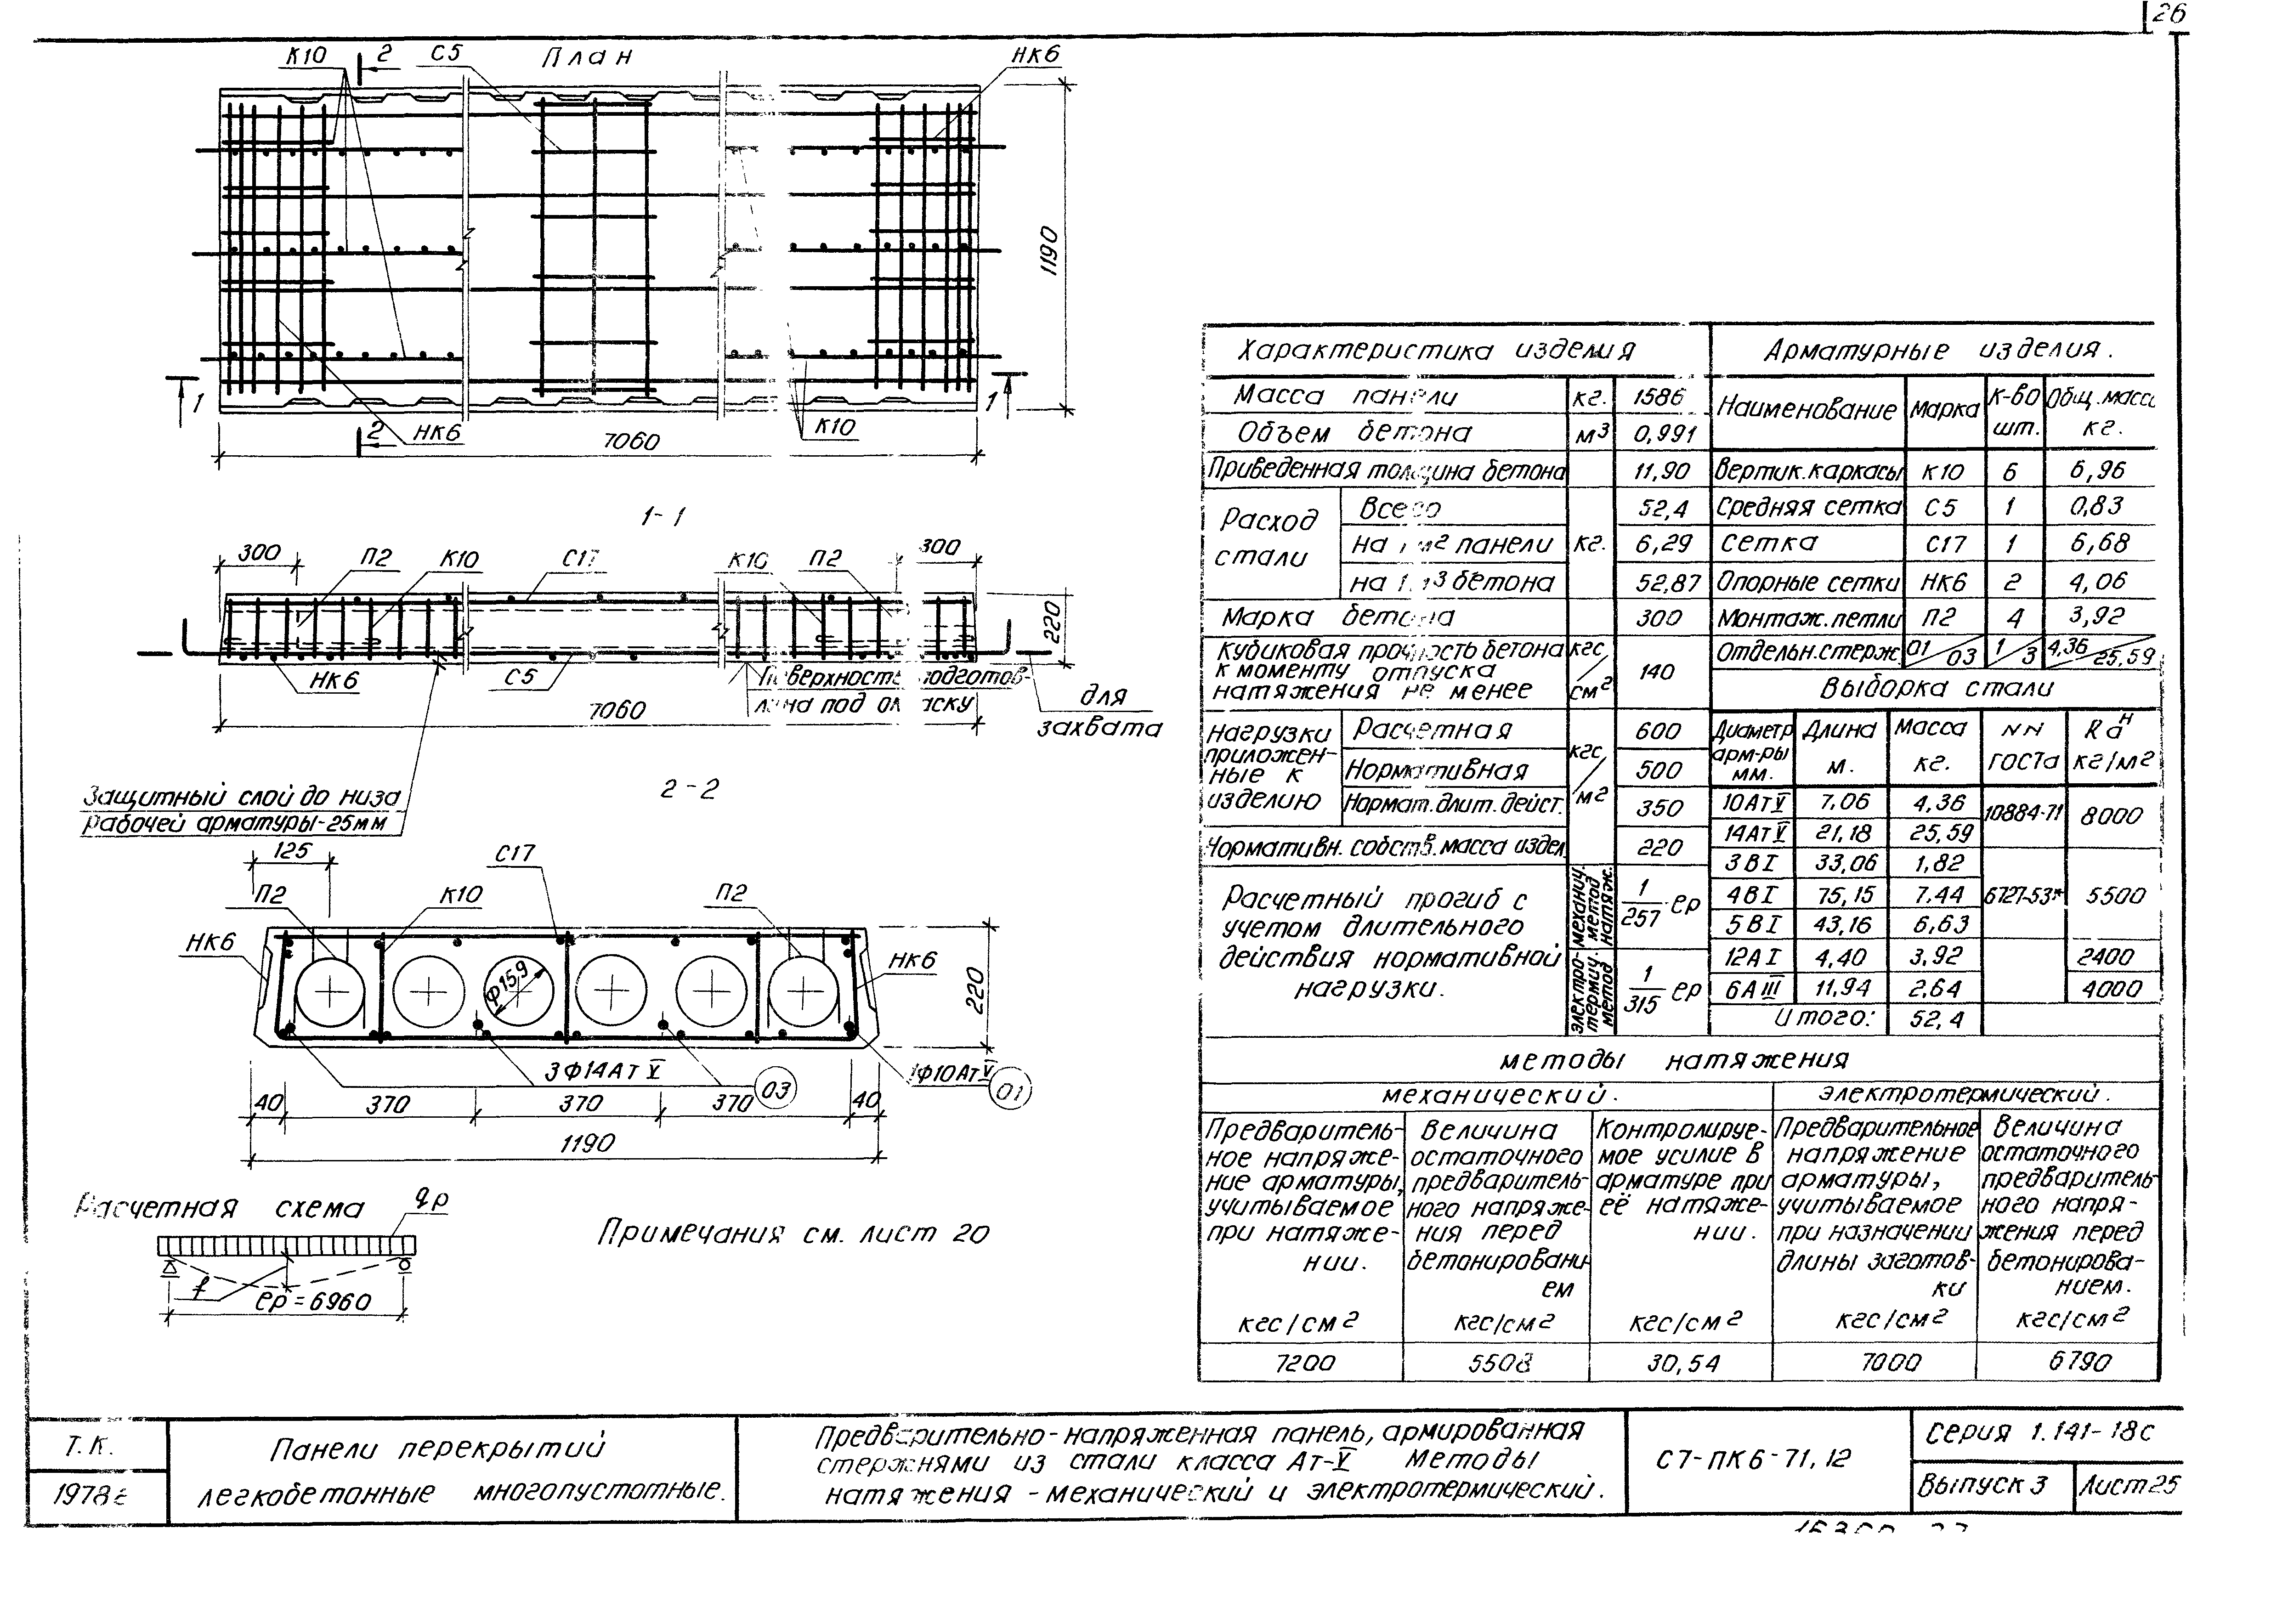 26
К10
2
С5
План
НК6
1190
1
1
2
НК6
7060
К10
1-1
300
П2
К10
С17
К10
П2
300
220
НК6
С5
7060
для
захвата
Защитный слой до низа
рабочей арматуры-25мм
2-2
125
П2
К10
С17
П2
НК6
НК6
Ф159
220
3Ф14Ат V
03
1Ф10Ат V
01
40
370
370
370
40
1190
Расчетная схема
qр
f
ℓр = 6960
Примечания см. лист 20
Характеристика изделия
Масса панели кг. 1586
Объем бетона м³ 0,991
Приведенная толщина бетона 11,90
Расход стали
Всего 52,4
на 1 м² панели кг. 6,29
на 1 м³ бетона 52,87
Марка бетона 300
Кубиковая прочность бетона
к моменту отпуска
натяжения не менее
кгс/см² 140
Нагрузки приложенные к изделию
Расчетная 600
Нормативная кгс/м² 500
Нормат. длит. дейст. 350
Нормативн. собств. масса издел. 220
Расчетный прогиб с
учетом длительного
действия нормативной
нагрузки.
механич. метод натяж.
1/257 ℓр
электро-термич. метод
1/315 ℓр
Арматурные изделия.
Наименование Марка К-во шт. Общ. масса кг.
Вертик. каркасы К10 6 6,96
Средняя сетка С5 1 0,83
Сетка С17 1 6,68
Опорные сетки НК6 2 4,06
Монтаж. петли П2 4 3,92
Отдельн. стерж 01/03 1/3 4,36/25,59
Выборка стали
Диаметр арм-ры мм. Длина м. Масса кг. NN ГОСТа Rаᴴ кг/м²
10АтV 7,06 4,36 10884-71 8000
14АтV 21,18 25,59
3ВI 33,06 1,82
4ВI 75,15 7.44 6727-53* 5500
5ВI 43,16 6,63
12АI 4,40 3,92 2400
6АIII 11,94 2,64 4000
Итого: 52,4
методы натяжения
механический.
электротермический.
Предваритель-
ное напряже-
ние арматуры,
учитываемое
при натяже-
нии.
кгс/см²
7200
Величина
остаточного
предваритель-
ного напряже-
ния перед
бетонировани
ем
кгс/см²
5508
Контролируе-
мое усилие в
арматуре при
её натяже-
нии.
кгс/см²
30,54
Предварительное
напряжение
арматуры,
учитываемое
при назначении
длины заготов-
ки
кгс/см²
7000
Величина
остаточного
предваритель
ного напря-
жения перед
бетонирова-
нием.
кгс/см²
6790
Т.К.
1978г
Панели перекрытий
легкобетонные многопустотные.
Предварительно-напряженная панель, армированная
стержнями из стали класса Ат-V Методы
натяжения - механический и электротермический.
С7-ПК6-71,12
Серия 1.141-18с
Выпуск 3
Лист 25